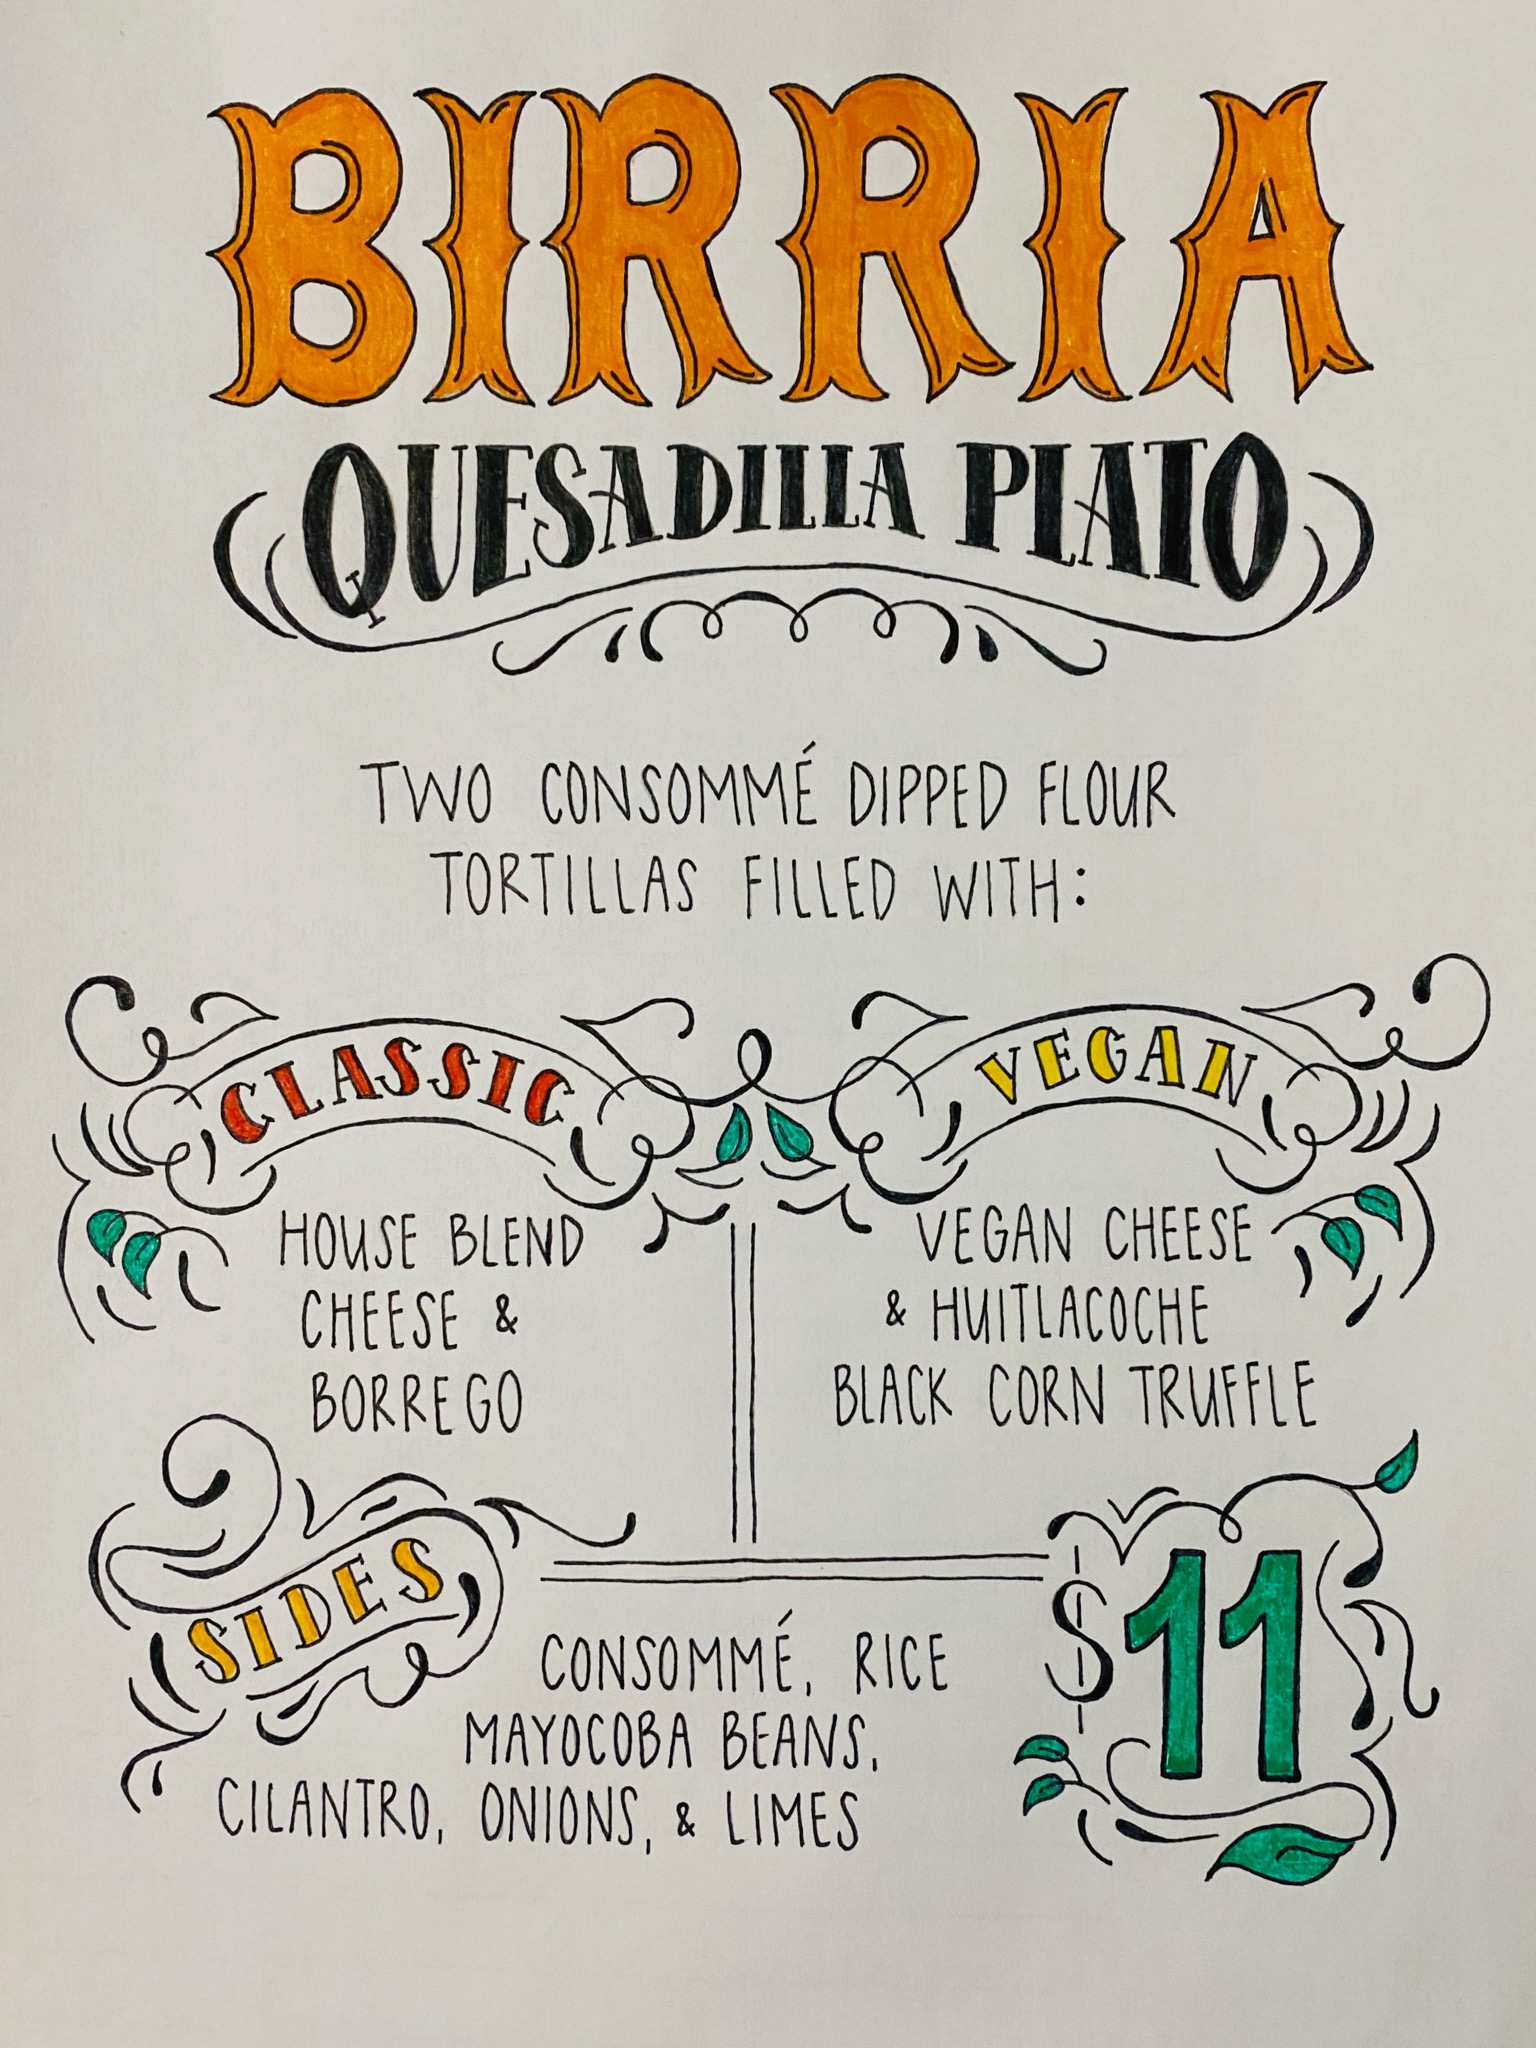 BIRRIA
QUESADILLA PLATO
TWO CONSOMMÉ DIPPED FLOUR
TORTILLAS FILLED WITH:
CLASSIC
HOUSE BLEND
CHEESE &
BORREGO
VEGAN
VEGAN CHEESE
& HUITLACOCHE
BLACK CORN TRUFFLE
SIDES
CONSOMMÉ, RICE
MAYOCOBA BEANS,
CILANTRO, ONIONS, & LIMES
$11